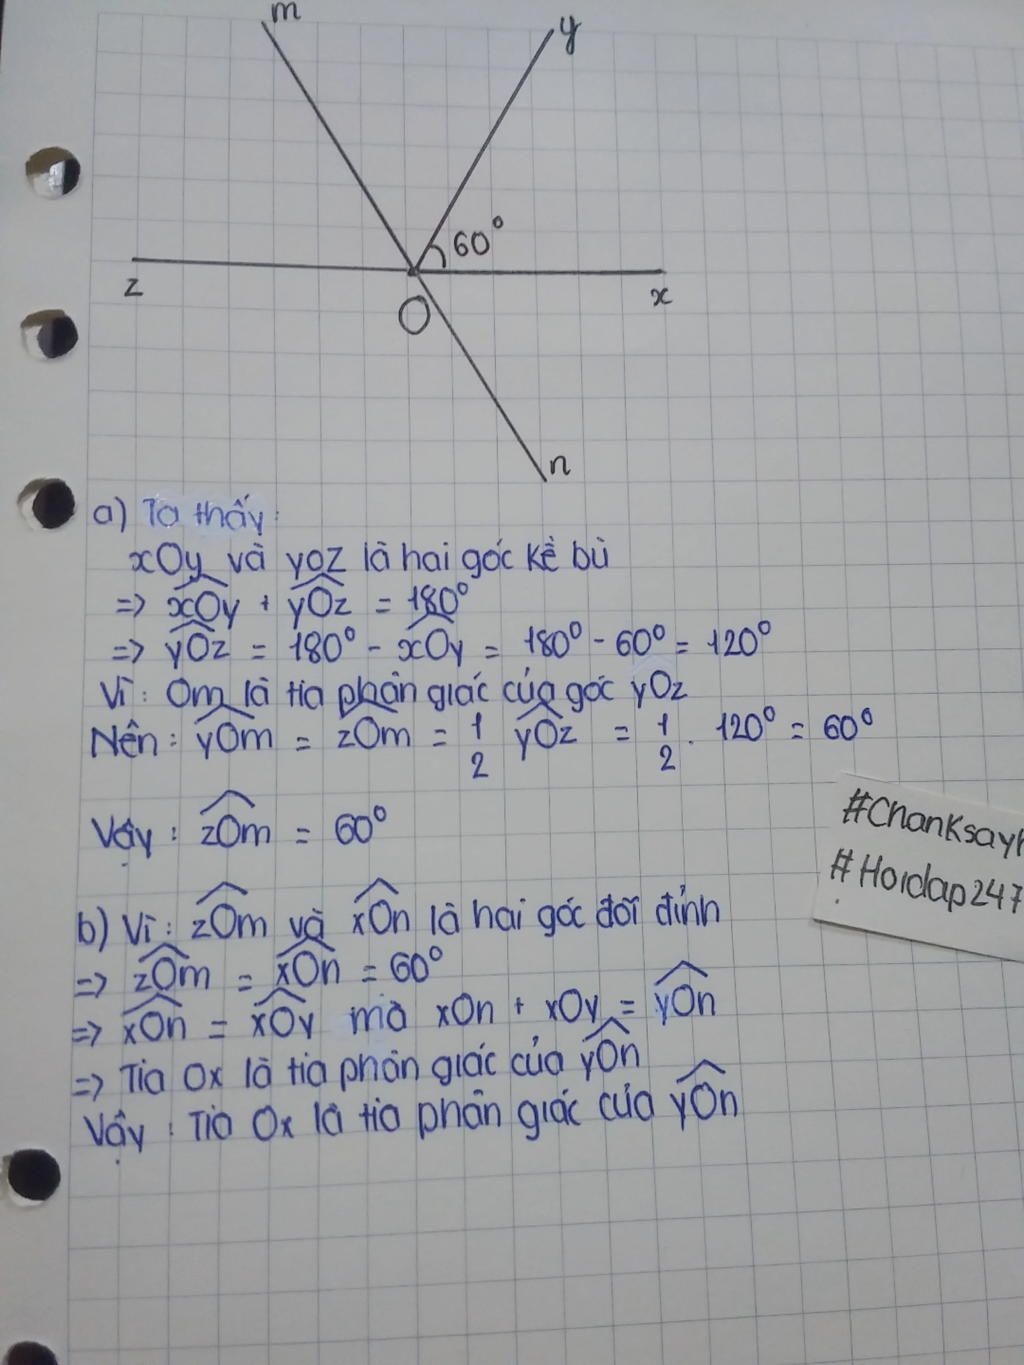 m
y
60°
z
x
O
n
a) Ta thấy:
xOy và yOz là hai góc kề bù
=> \widehat{xOy} + \widehat{yOz} = 180°
=> \widehat{yOz} = 180° - \widehat{xOy} = 180° - 60° = 120°
Vì: Om là tia phân giác của góc yOz
Nên: \widehat{yOm} = \widehat{zOm} = \frac{1}{2} \widehat{yOz} = \frac{1}{2} . 120° = 60°
Vậy: \widehat{zOm} = 60°
#Chanksayh
#Hoidap247
b) Vì: \widehat{zOm} và \widehat{xOn} là hai góc đối đỉnh
=> \widehat{zOm} = \widehat{xOn} = 60°
=> \widehat{xOn} = \widehat{xOy} mà xOn + xOy = \widehat{yOn}
=> Tia Ox là tia phân giác của \widehat{yOn}
Vậy: Tia Ox là tia phân giác của \widehat{yOn}